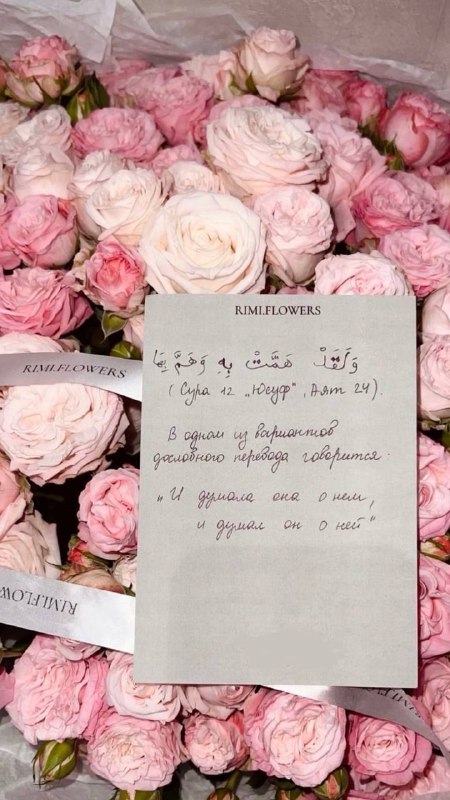 RIMI.FLOWERS
وَلَقَدْ هَمَّتْ بِهِ وَهَمَّ بِهَا
(Сура 12 „Юсуф“, Аят 24).
В одном из вариантов
дословного перевода говорится:
„И думала она о нем,
и думал он о ней“
RIMI.FLOWERS
RIMI.FLOWERS
RIMI.FLOWERS